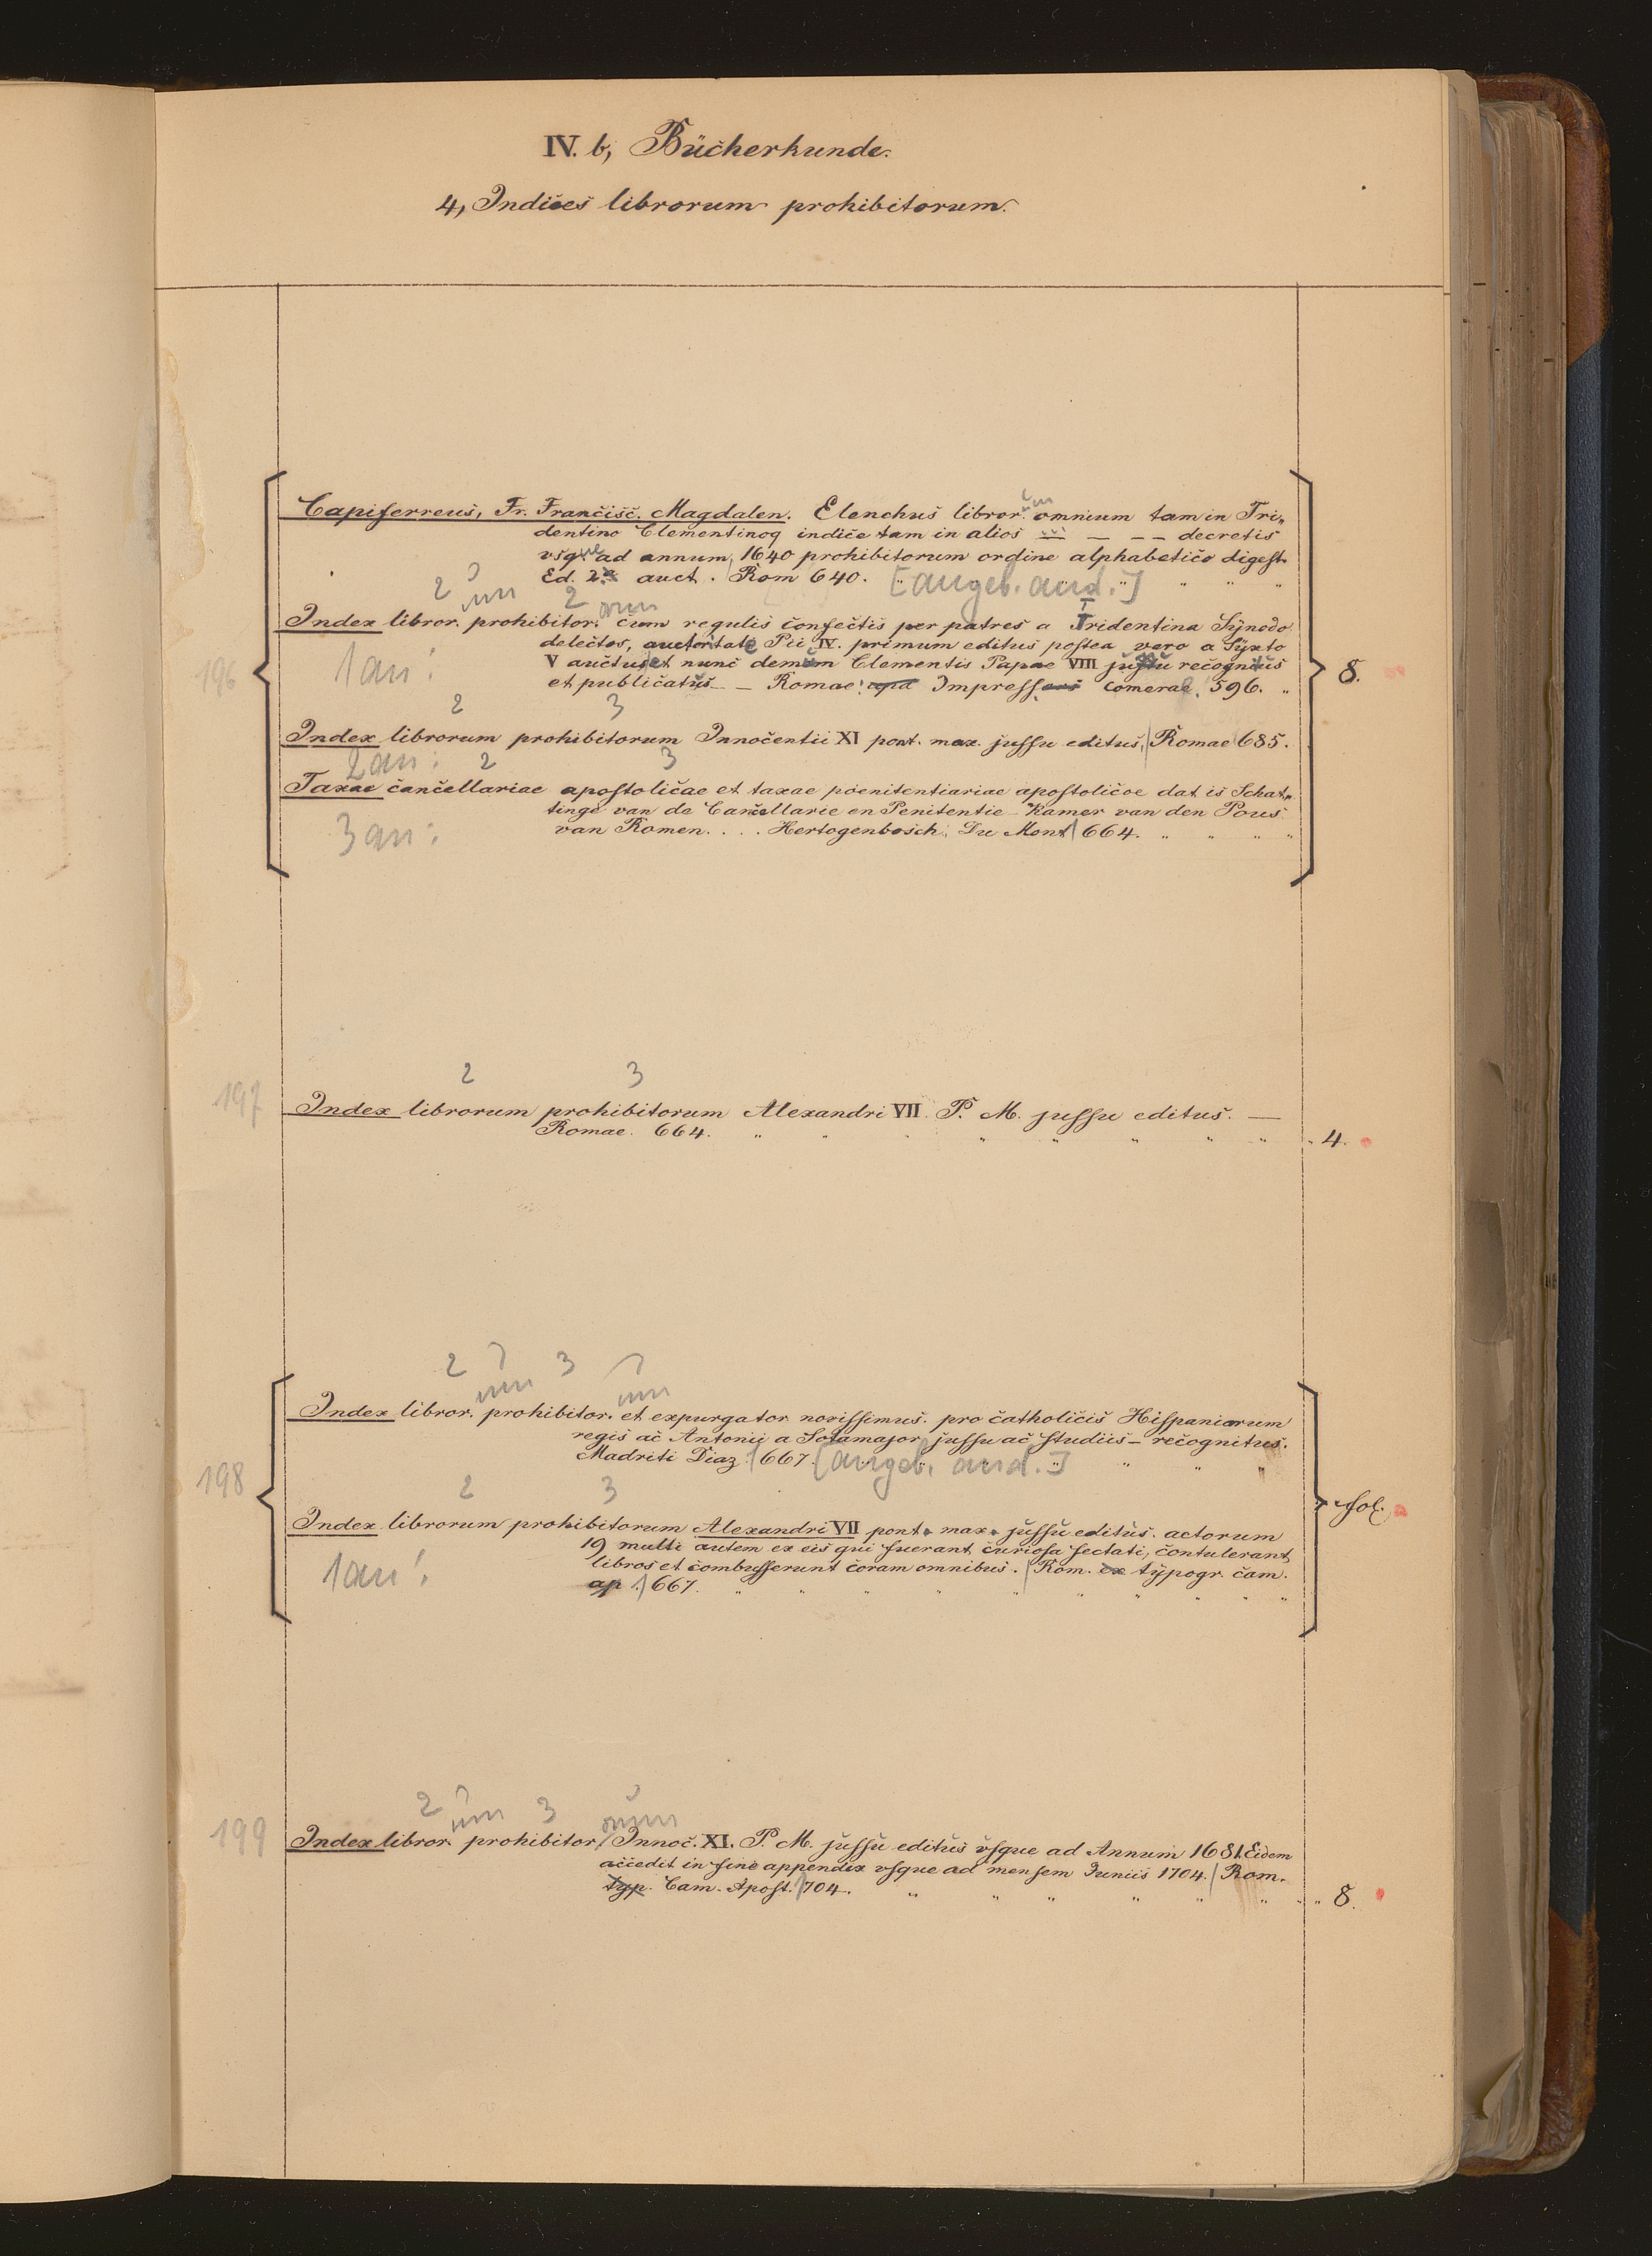 IV. b, Bücherkunde.
4, Indices librorum prohibitorum.
Capiferreus, Fr. Francisc. Magdalen. Elenchus libror. um omnium tam in Tri-
dentino Clementinoq indice tam in alios — — — — decretis
vsque ad annum 1640 prohibitorum ordine alphabetico digest.
Ed. 2a auct. Rom 640. [angeb. and.]
2 um 2 orum
Index libror. prohibitor. cum regulis confectis per patres a Tridentina Synodo
delectos, auctoritate Pii IV. primum editus postea vero a Syxto
196 1 an: V auctus et nunc demum Clementis Papae VIII jussu recognitus 8.
et publicatus — Romae: apd Impress comerae. 596.
2 3
Index librorum prohibitorum Innocentii XI pont. max. jussu editus, Romae 685.
2 an: 2 3
Taxae cancellariae apostolicae et taxae poenitentiariae apostolicoe dat is Schat-
tinge van de Cancellarie en Penitentie Kamer van den Pous
3 an: van Romen . . . . Hertogenbosch, Du Mont 664.
2 3
197 Index librorum prohibitorum Alexandri VII. P. M. jussu editus. —
Romae. 664. 4.
2 3
um um
Index libror. prohibitor. et expurgator novissimus. pro catholicis Hispaniarum
regis ac Antonii a Sotamajor jussu ac studiis — recognitus.
198 Madriti Diaz. 667. [angeb. and.]
2 3 fol.
Index librorum prohibitorum Alexandri VII pont. max. jussu editus. actorum
19 multi autem ex eis qui fuerant, curiosa sectati, contulerant
1 an: libros et combusserunt coram omnibus. Rom. ex typogr. cam.
ap. 667.
2 um 3 orum
199 Index libror. prohibitor, Innoc. XI. P. M. jussu editus vsque ad Annum 1681. Eidem
accedit in fine appendix vsque ad mensem Juniis 1704. Rom.
typ. Cam. Apost. 704. 8.